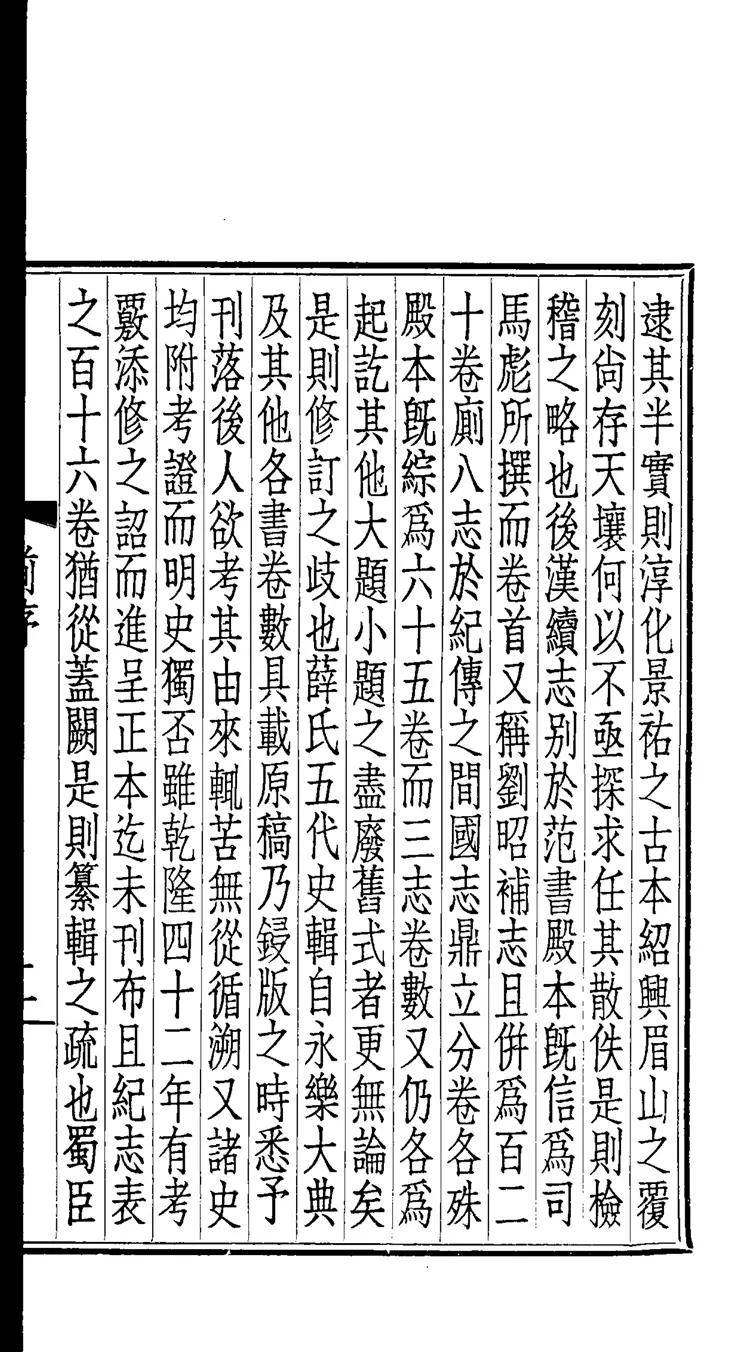 逮其半實則淳化景祐之古本紹興眉山之覆
刻尙存天壤何以不亟探求任其散佚是則檢
稽之略也後漢續志别於范書殿本旣信爲司
馬彪所撰而卷首又稱劉昭補志且倂爲百二
十卷廁八志於紀傳之間國志鼎立分卷各殊
殿本旣綜爲六十五卷而三志卷數又仍各爲
起訖其他大題小題之盡廢舊式者更無論矣
是則修訂之歧也薛氏五代史輯自永樂大典
及其他各書卷數具載原稿乃鋟版之時悉予
刊落後人欲考其由來輒苦無從循溯又諸史
均附考證而明史獨否雖乾隆四十二年有考
覈添修之詔而進呈正本迄未刊布且紀志表
之百十六卷猶從蓋闕是則纂輯之疏也蜀臣